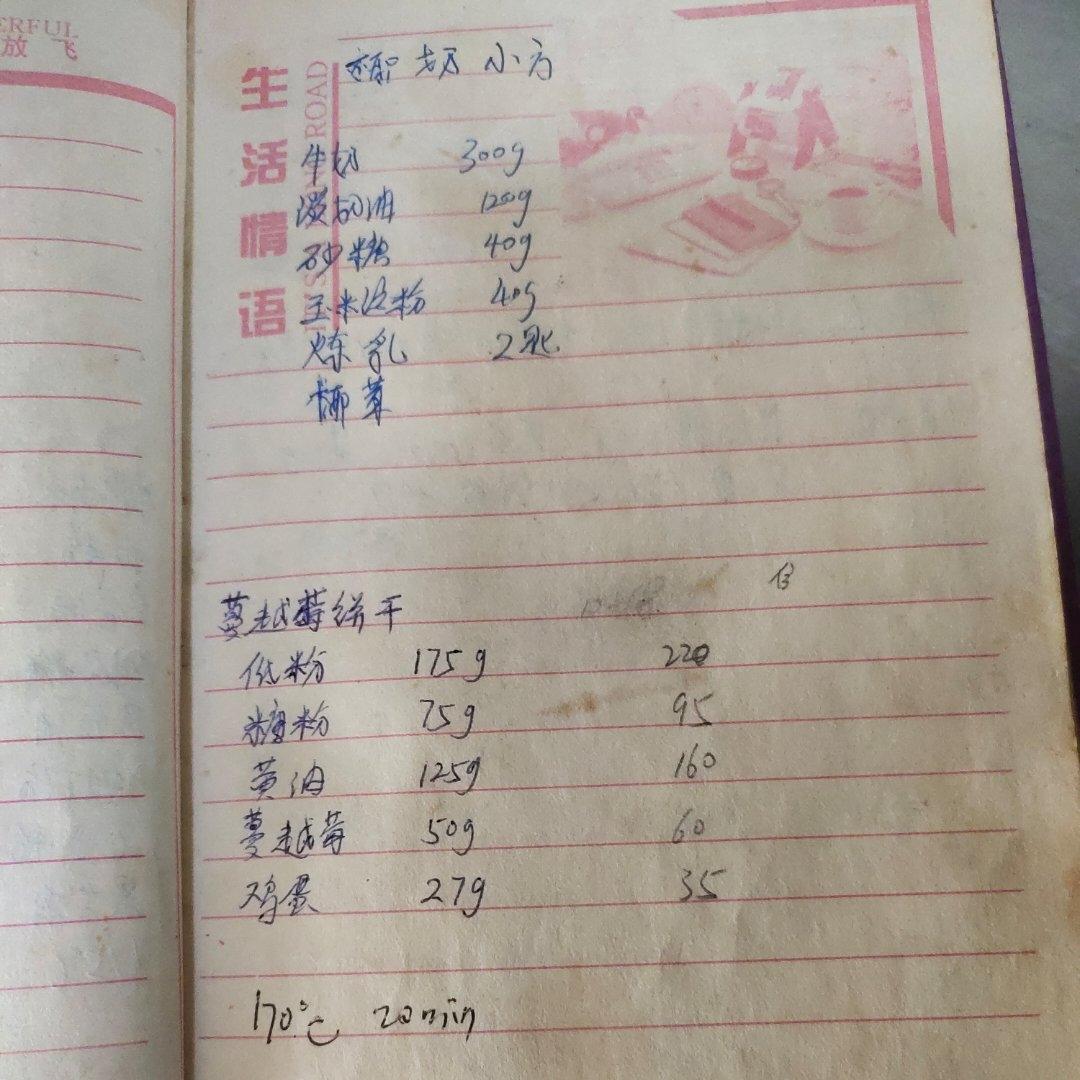 ERFUL
放 飞
生活情语
ROAD
椰奶小方
牛奶 300g
淡奶油 120g
砂糖 40g
玉米淀粉 40g
炼乳 2匙
椰蓉
蔓越莓饼干
低粉 175g 220
糖粉 75g 95
黄油 125g 160
蔓越莓 50g 60
鸡蛋 27g 35
170℃ 20min